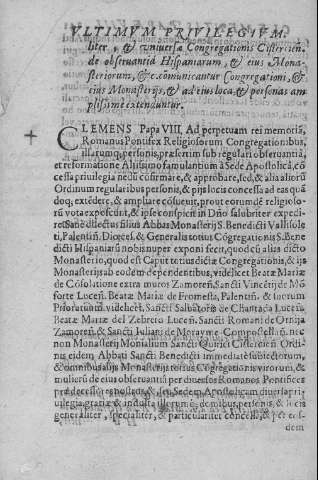 VLTIMVM PRIVILEGIVM
liter, & vniuersæ Congregationis Cistercien.
de obseruantia Hispaniarum, & eius Mona-
steriorum, &c. cõmunicantur Congregationi, &
eius Monasterijs, & ad eius loca, & personas am
plissime extenduntur.
CLEMENS Papa VIII. Ad perpetuam rei memoriã,
Romanus Pontifex Religiosorum Congregationibus,
illarumq; personis, præsertim sub regulari obseruantia,
et reformatione Altissimo famulantium à Sede Apostolica, cõ
cessa priuilegia nedũ confirmare, & approbare, sed, & alia aliorũ
Ordinum regularibus personis, & pijs locis concessa ad ea quæ
doq; extẽdere, & ampliare cõsueuit, prout eorumdẽ religioso-
rũ vota exposcunt, & ipse conspicit in Dño salubriter expedi-
re Sane dilectus filius Abbas Monasterij S. Benedicti Vallisole
ti, Palentiñ. Diœces, & Generalis totius Cõgregationis S. Bene
dicti Hispaniarũ nobis nuper exponi fecit, quod cũ alias dicto
Monasterio, quod est Caput totius dictæ Congregationis, & ijs
Monasterijs ab eodem dependentibus, videlicet Beatæ Mariæ
de Cõsolatione extra muros Zamoreñ. Sancti Vincẽtij de Mõ
forte Luceñ. Beatæ Mariæ de Fromesta, Palentiñ. & suorum
Prioratuum videlicet, Sancti Saluatoris de Chantada Luceñ.
Beatæ Mariæ del Zebrero Luceñ. Sancti Romani de Ornija
Zamoreñ. & Sancti Iuliani de Morayme Compostellañ. nec
non Monasterij Monialium Sancti Quirici Cistercieñ. Ordi-
nis eidem Abbati Sancti Benedicti immediate subiectorum,
& omnibus alijs Monasterijs totius Cõgregationis virorum, &
mulierũ de eius obseruantia per diuersos Romanos Pontifices
prædecessores nostros, & seu Sedem Apostolicam diuersa pri-
uilegia, gratiæ & indulta illorumq; domibus, personis, & locis
generaliter, specialiter, & particulariter concessa, & per eos-
dem